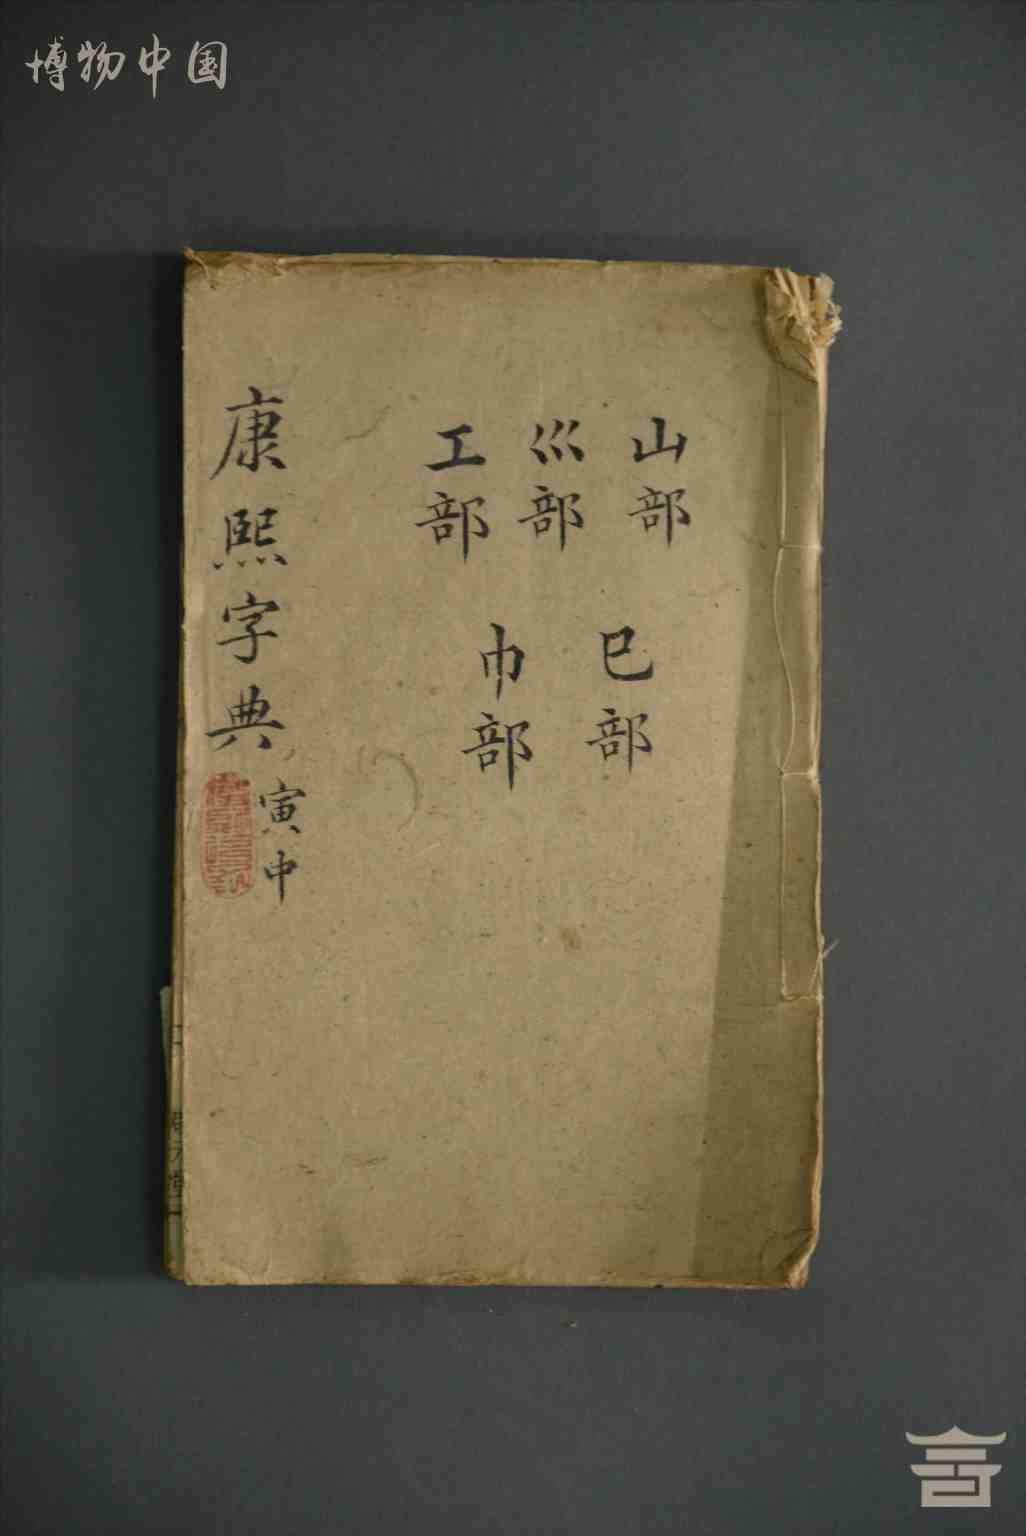 博物中国
山部
巛部
工部
巳部
巾部
康熙字典
寅中